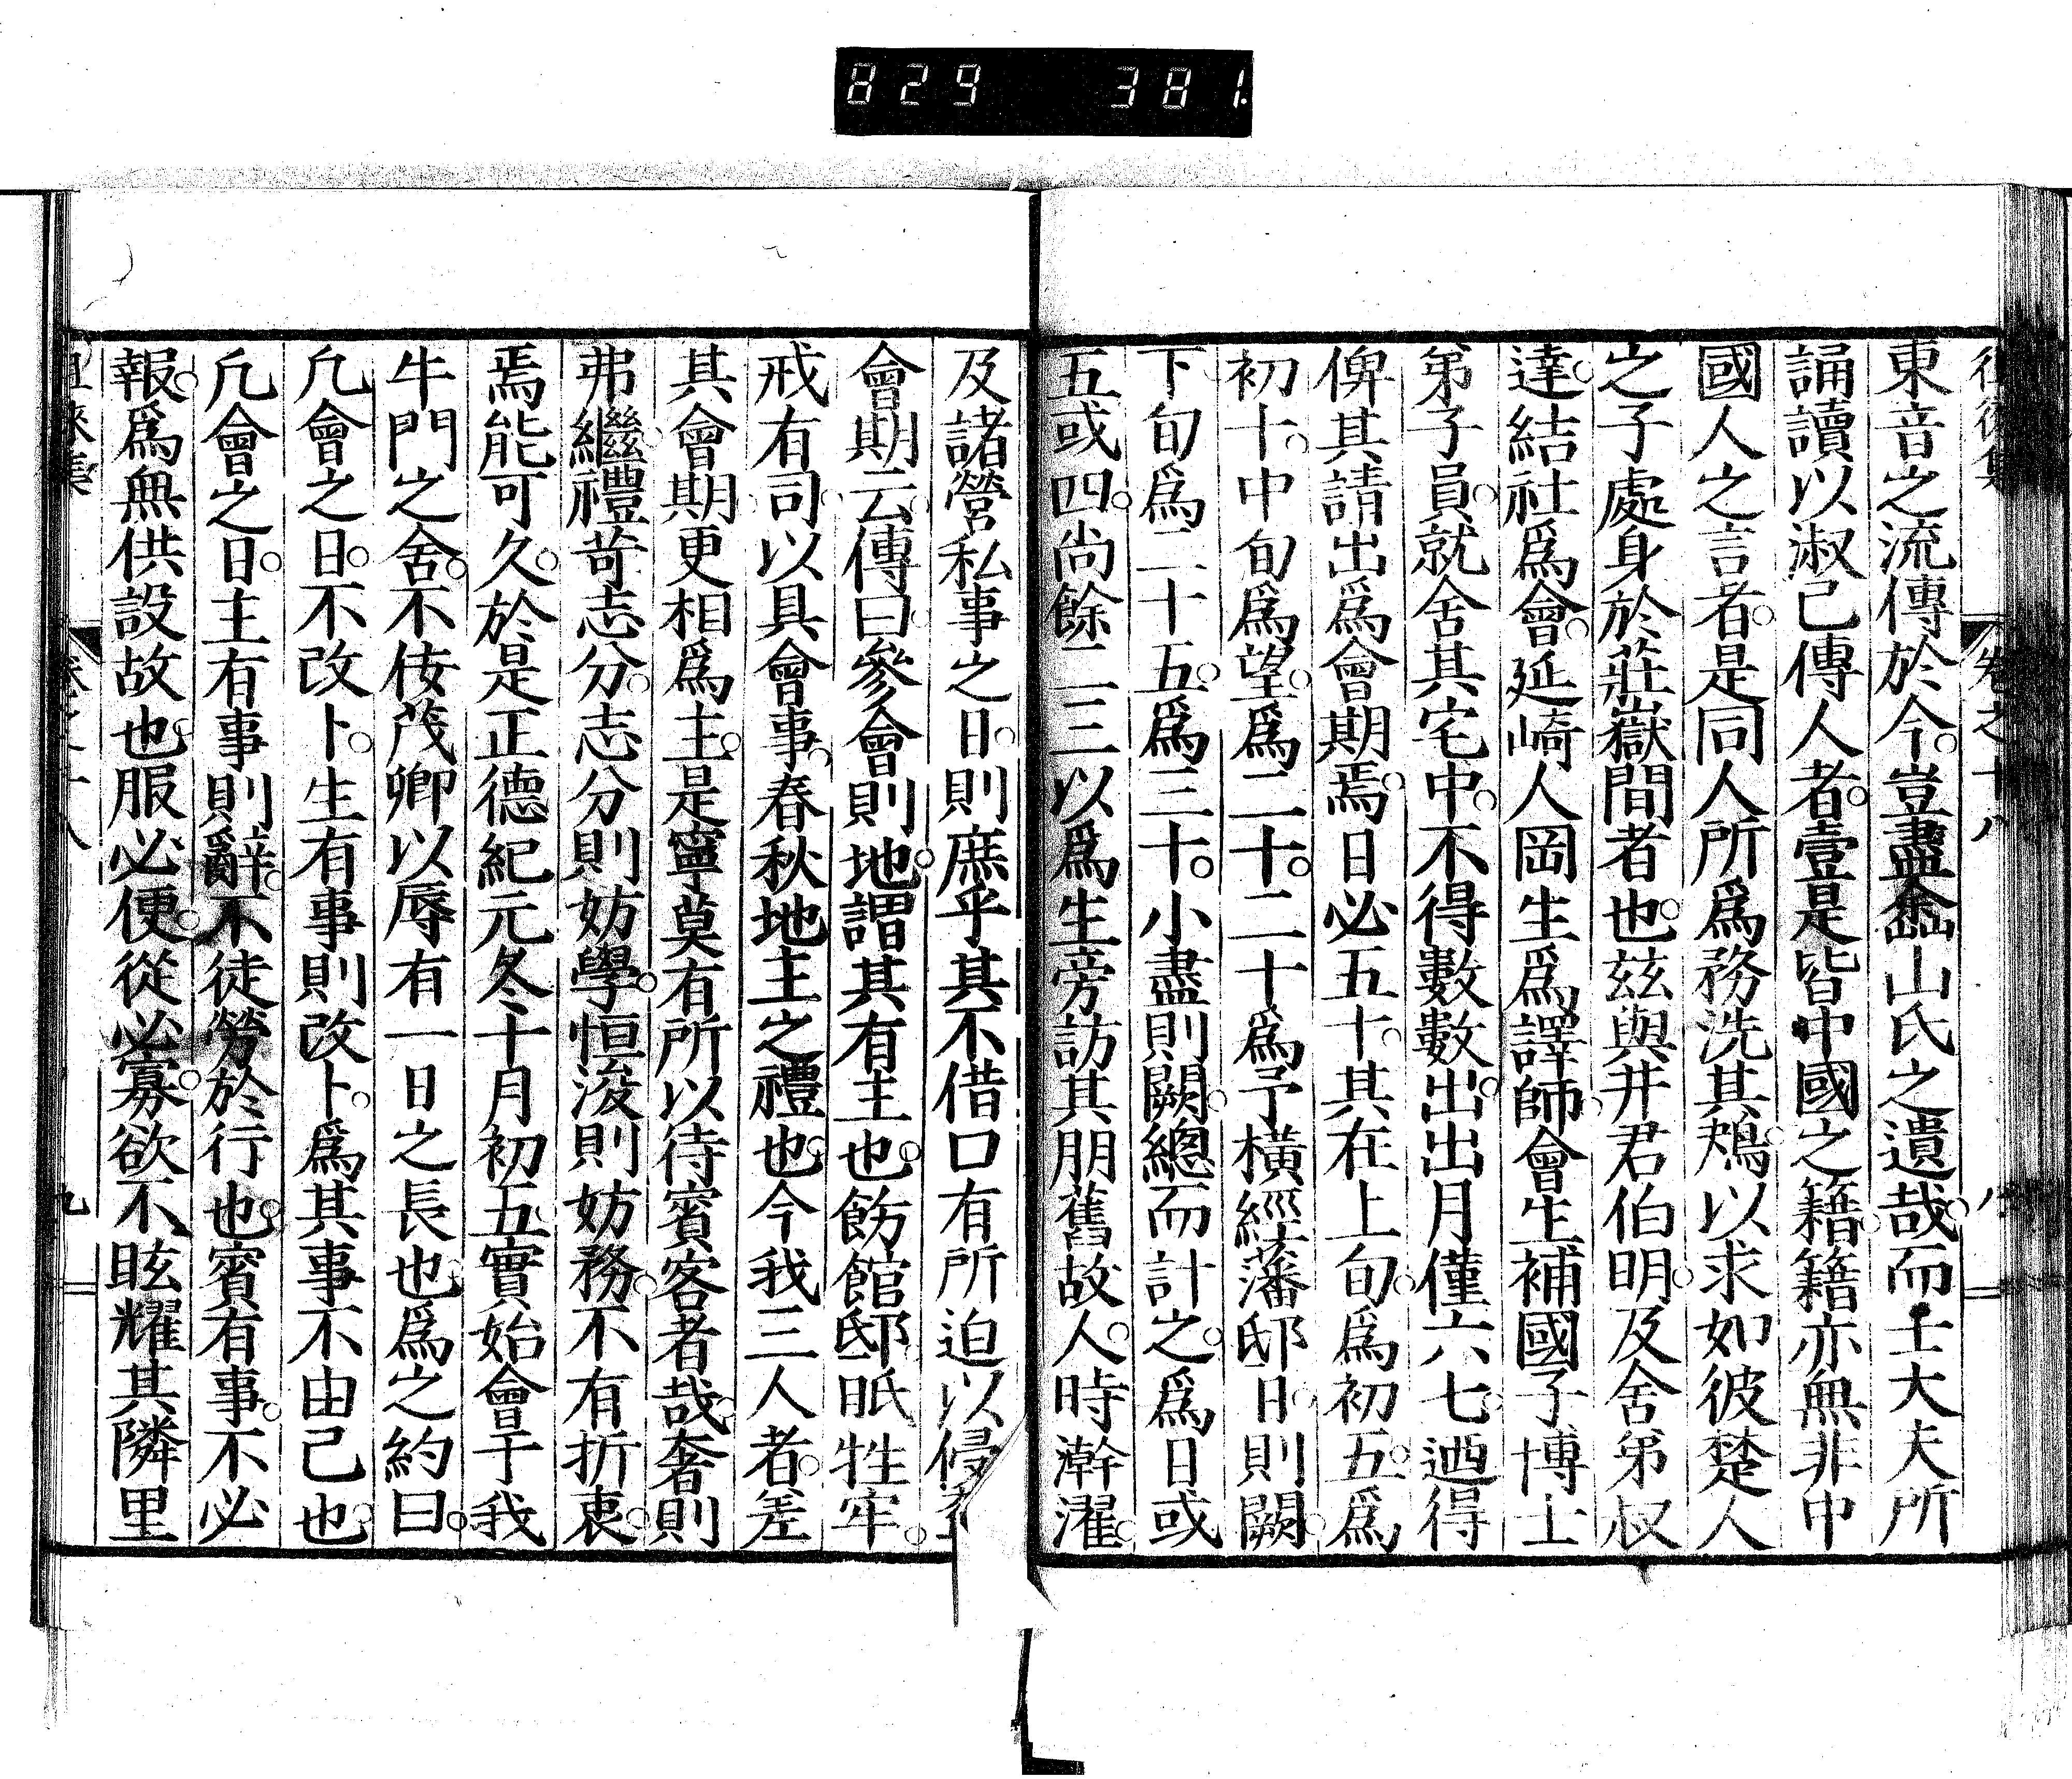 829 381.
東音之流傳於今。豈盡㑹山氏之遺哉。而士大夫所
誦讀以淑己傳人者。壹是皆中國之籍。籍亦無非中
國人之言者。是同人所爲務洗其鴂。以求如彼楚人
之子處身於莊嶽間者也。茲與井君伯明。及舍弟叔
達。結社爲會。延崎人岡生爲譯師。會生補國子博士
弟子員。就舍其宅中。不得數數出。出月僅六七。迺得
俾其請出爲會期焉。日必五十。其在上旬。爲初五。爲
初十。中旬爲望。爲二十。二十爲予橫經藩邸日。則闕。
下旬爲二十五。爲三十。小盡則闕。總而計之。爲日或
五或四。尚餘二三以爲生旁訪其朋舊故人。時澣濯。
及諸營私事之日。則庶乎其不借口有所迫以侵
會期云。傳曰。參會則地。謂其有主也。飭館邸。眂牲牢。
戒有司。以具會事。春秋地主之禮也。今我三人者。差
其會期。更相爲主。是寧莫有所以待賓客者哉。奢則
弗繼。禮苛志分。志分則妨學。恒浚則妨務。不有折衷。
焉能可久。於是正德紀元冬十月初五。實始會于我
牛門之舍。不佞茂卿以辱有一日之長也。爲之約曰。
凢會之日。不改卜。生有事則改卜。爲其事不由己也。
凢會之日。主有事則辭。不徒勞於行也。賓有事。不必
報。爲無供設故也。服必便。從必寡。欲不眩耀其隣里
卷之十八
八
九